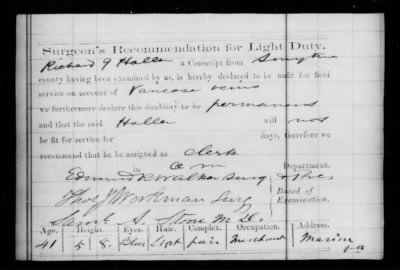 Surgeon's Recommendation for Light Duty.
Richard G Haller a Conscript from Smythe
county having been examined by us, is hereby declared to be unfit for field
service on account of Varicose veins
we furthermore declare this disability to be permanent
and that the said Haller will not
be fit for service for days, therefore we
recommend that he be assigned as Clerk
in Q M Department.
Edmund R Walker Surg & Pres
Thos J Workman Surg Board of
Saml A. Stone M D. Examination.
Age. Height. Eyes. Hair. Complex. Occupation. Address.
41 5 8. Blue Light fair Merchant Marion Va